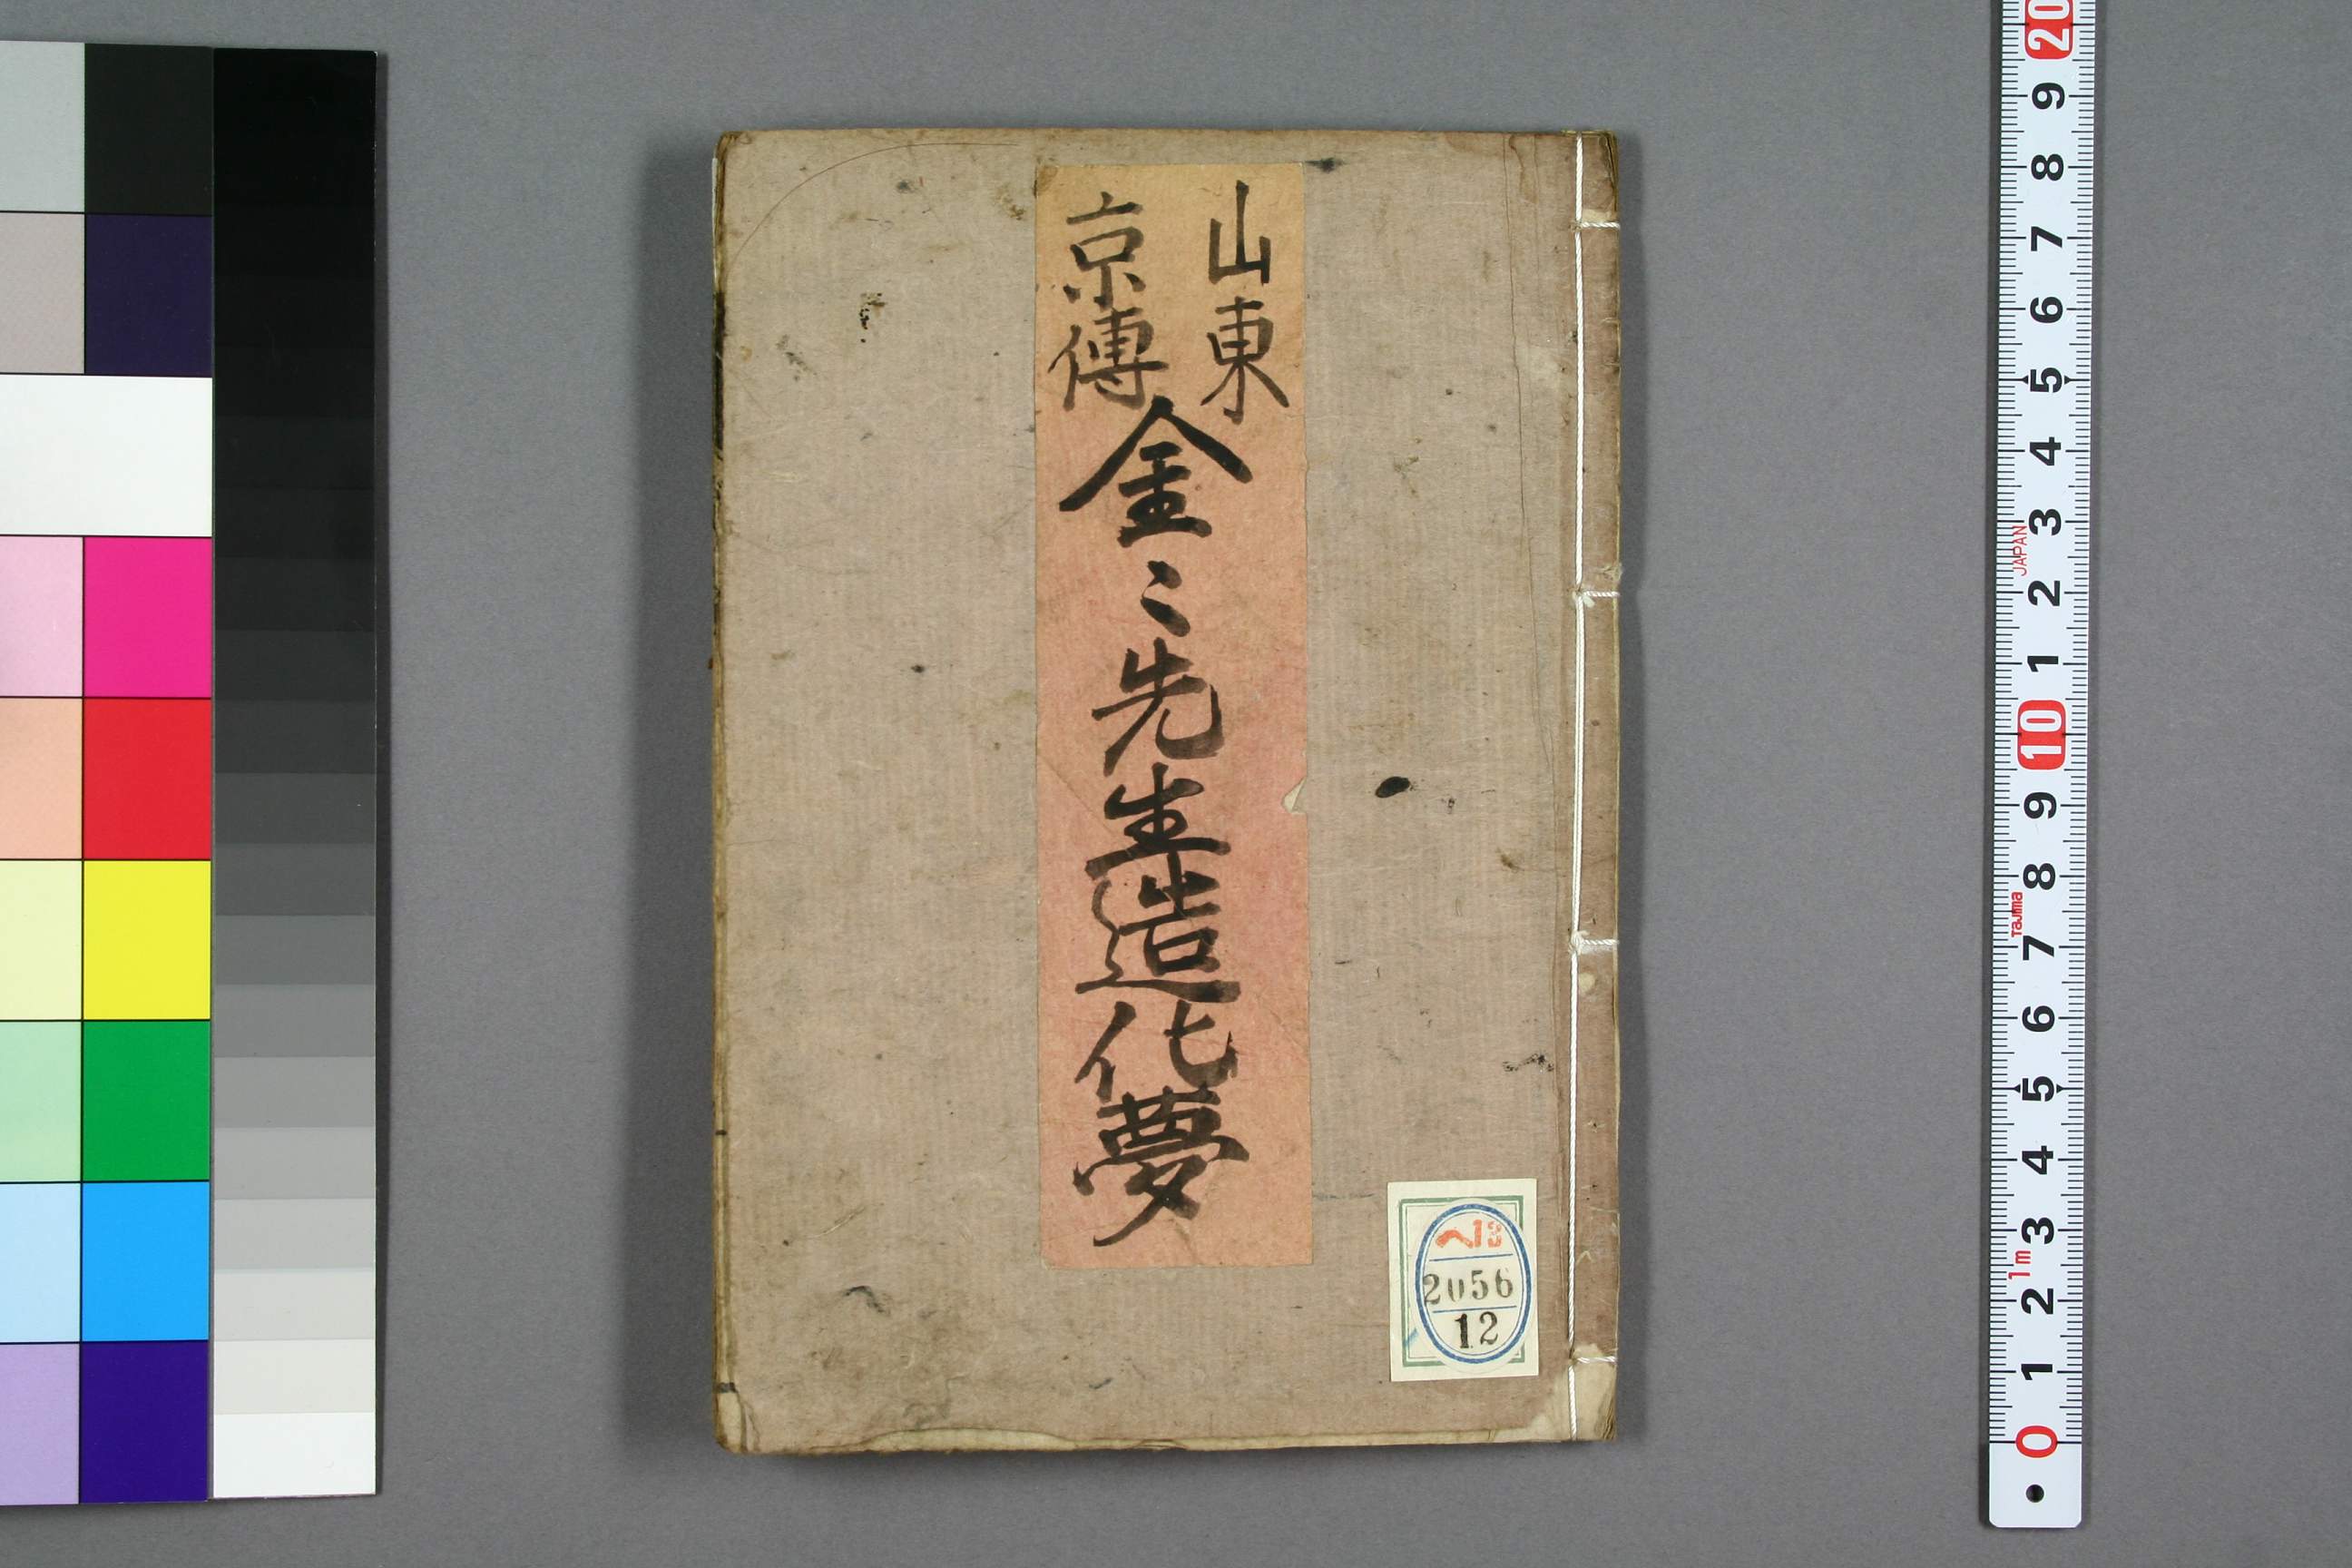 山東
京傳
金〻先生造化夢
ヘ13
2056
12
20
9
8
7
6
5
4
3
2
1
10
9
8
7
6
5
4
3
2
1
0
JAPAN
Tajima
1m